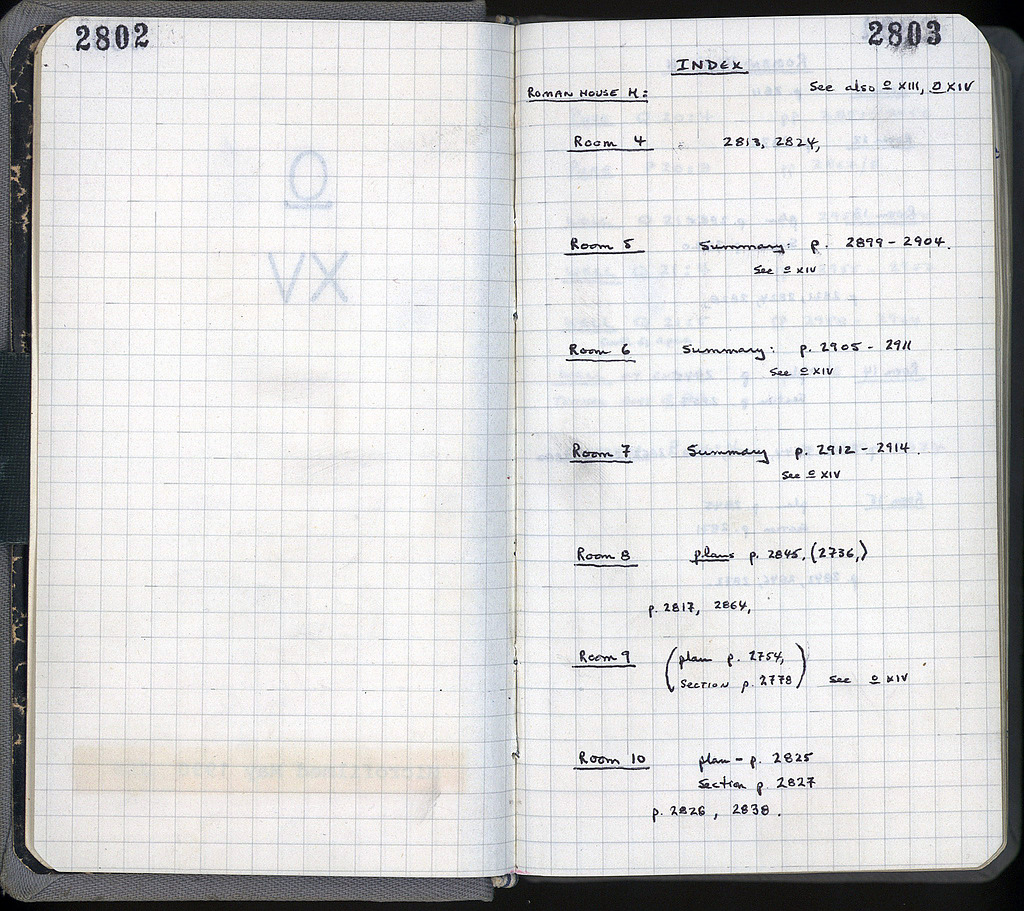 2802
2803
INDEX
ROMAN HOUSE H:
See also O XIII, O XIV
Room 4 2813, 2824,
Room 5 Summary: p. 2899 - 2904.
See O XIV
Room 6 Summary: p. 2905 - 2911
See O XIV
Room 7 Summary p. 2912 - 2914.
See O XIV
Room 8 plans p. 2845, (2736,)
p. 2817, 2864,
Room 9 (plan p. 2754,
Section p. 2778) See O XIV
Room 10 plan - p. 2825
Section p. 2827
p. 2826, 2838.